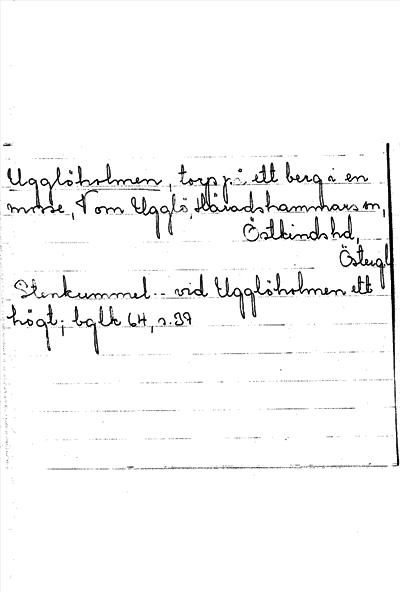 Ugglöholmen, torp på ett berg i en
mosse, V om Ugglö, Häradshammars sn,
Östkinds hd,
Östergl
Stenkummel.. vid Ugglöholmen ett
högt; bglk 64, s. 39